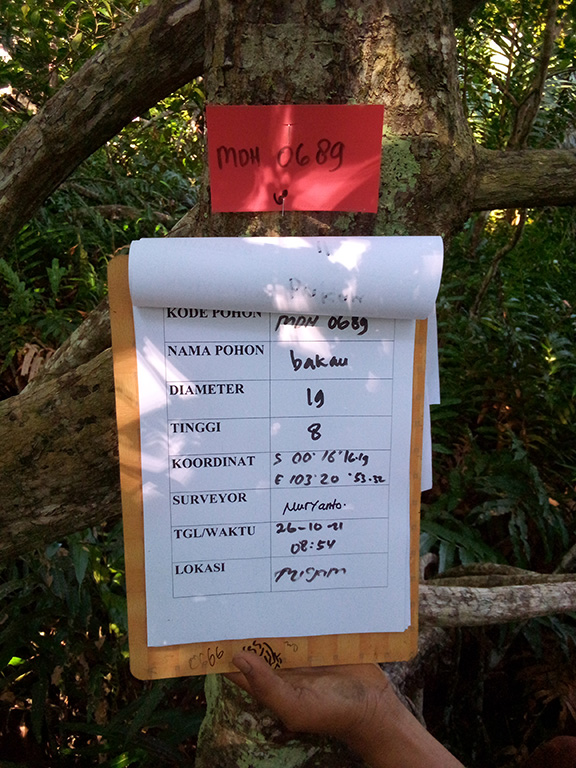 MDH 0689
KODE POHON MDH 0689
NAMA POHON bakau
DIAMETER 19
TINGGI 8
KOORDINAT S 00° 16' 16.19
E 103° 20' 53.32
SURVEYOR Nuryanto.
TGL/WAKTU 26-10-21
08:54
LOKASI